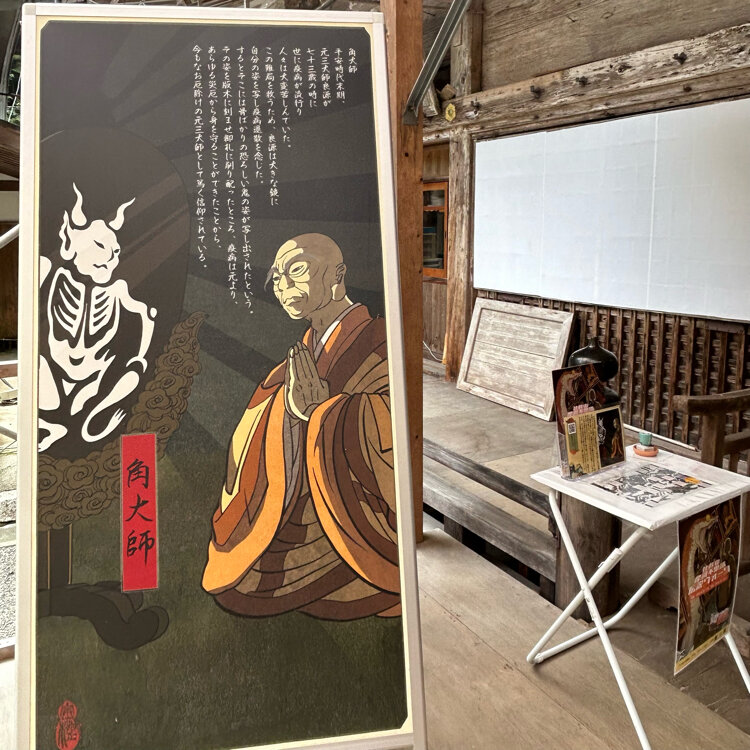 角大師
平安時代末期、
元三大師良源が
七十三歳の時に
世に疫病が流行り
人々は大変苦しんでいた。
この難局を救うため、良源は大きな鏡に
自分の姿を写し疫病退散を念じた。
するとそこには骨ばかりの恐ろしい鬼の姿が写し出されたという。
その姿を版木に刻ませ御札に刷り配ったところ、疫病は元より、
あらゆる災厄から身を守ることができたことから、
今もなお厄除けの元三大師として篤く信仰されている。
角大師